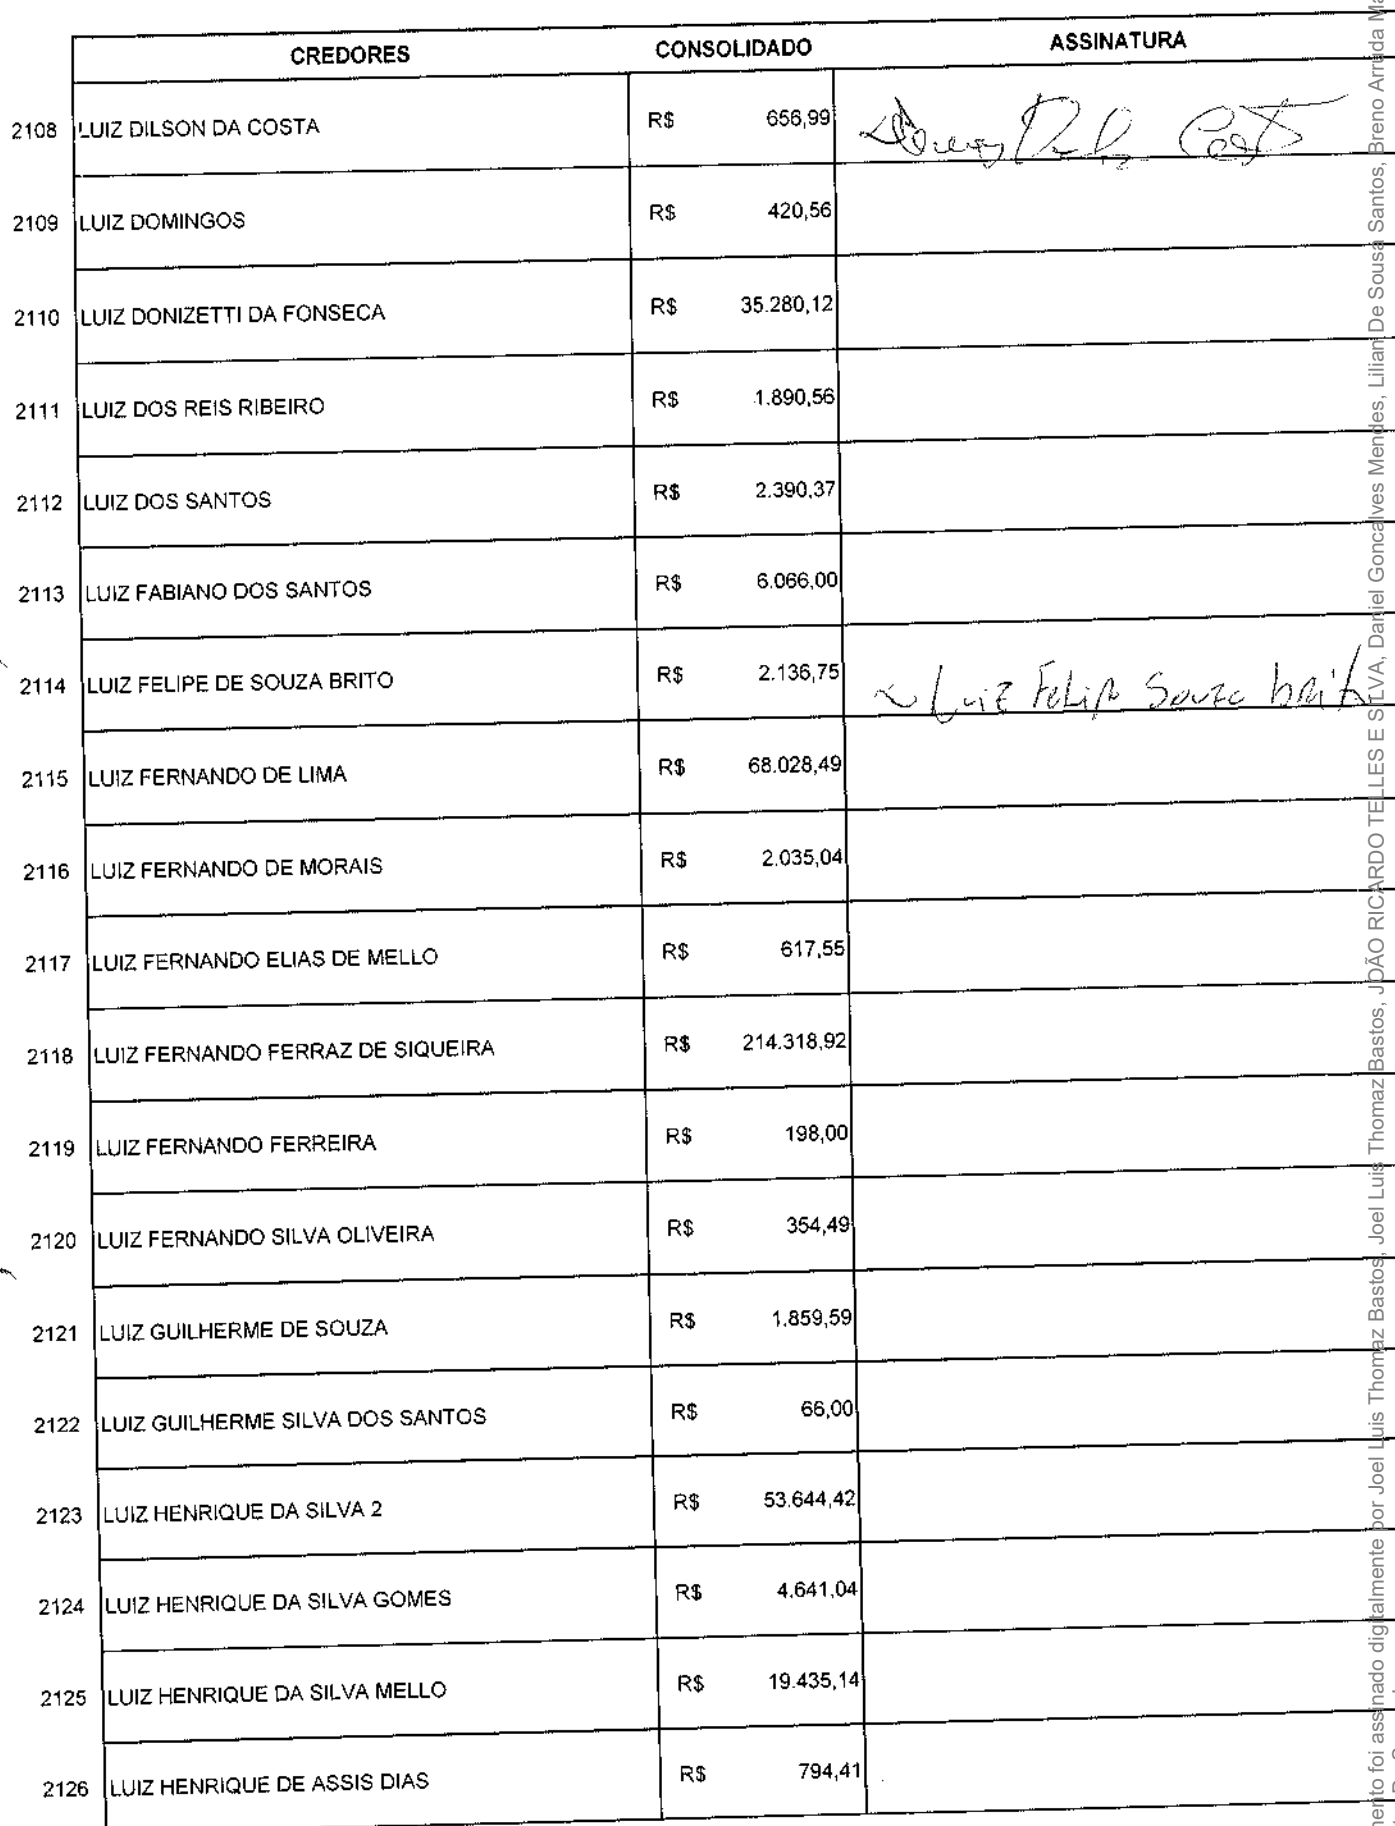 CREDORES CONSOLIDADO ASSINATURA
2108 LUIZ DILSON DA COSTA R$ 656,99
2109 LUIZ DOMINGOS R$ 420,56
2110 LUIZ DONIZETTI DA FONSECA R$ 35.280,12
2111 LUIZ DOS REIS RIBEIRO R$ 1.890,56
2112 LUIZ DOS SANTOS R$ 2.390,37
2113 LUIZ FABIANO DOS SANTOS R$ 6.066,00
2114 LUIZ FELIPE DE SOUZA BRITO R$ 2.136,75 Luiz Felipe Souza brito
2115 LUIZ FERNANDO DE LIMA R$ 68.028,49
2116 LUIZ FERNANDO DE MORAIS R$ 2.035,04
2117 LUIZ FERNANDO ELIAS DE MELLO R$ 617,55
2118 LUIZ FERNANDO FERRAZ DE SIQUEIRA R$ 214.318,92
2119 LUIZ FERNANDO FERREIRA R$ 198,00
2120 LUIZ FERNANDO SILVA OLIVEIRA R$ 354,49
2121 LUIZ GUILHERME DE SOUZA R$ 1.859,59
2122 LUIZ GUILHERME SILVA DOS SANTOS R$ 66,00
2123 LUIZ HENRIQUE DA SILVA 2 R$ 53.644,42
2124 LUIZ HENRIQUE DA SILVA GOMES R$ 4.641,04
2125 LUIZ HENRIQUE DA SILVA MELLO R$ 19.435,14
2126 LUIZ HENRIQUE DE ASSIS DIAS R$ 794,41
ento foi assinado digitalmente por Joel Luis Thomaz Bastos, Joel Luis Thomaz Bastos, JOÃO RICARDO TELLES E SILVA, Daniel Goncalves Mendes, Lilian De Sousa Santos, Breno Arruda Ma